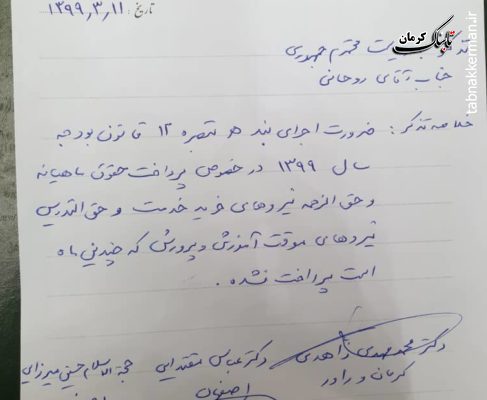 تاریخ: ۱۳۹۹,۳,۱۱
تابناک کرمان
tabnakkerman.ir
ریاست محترم جمهوری
جناب آقای روحانی
خلاصه تذکر: ضرورت اجرای بند هـ تبصره ۱۲ قانون بودجه
سال ۱۳۹۹ در خصوص پرداخت حقوق ماهیانه
و حق الزحمه نیروهای خرید خدمت و حق التدریس
نیروهای موقت آموزش و پرورش که چندین ماه
است پرداخت نشده.
دکتر محمد مهدی زاهدی دکتر عباس مقتدایی حجة الاسلام حسین میرزایی
کرمان و راور اصفهان